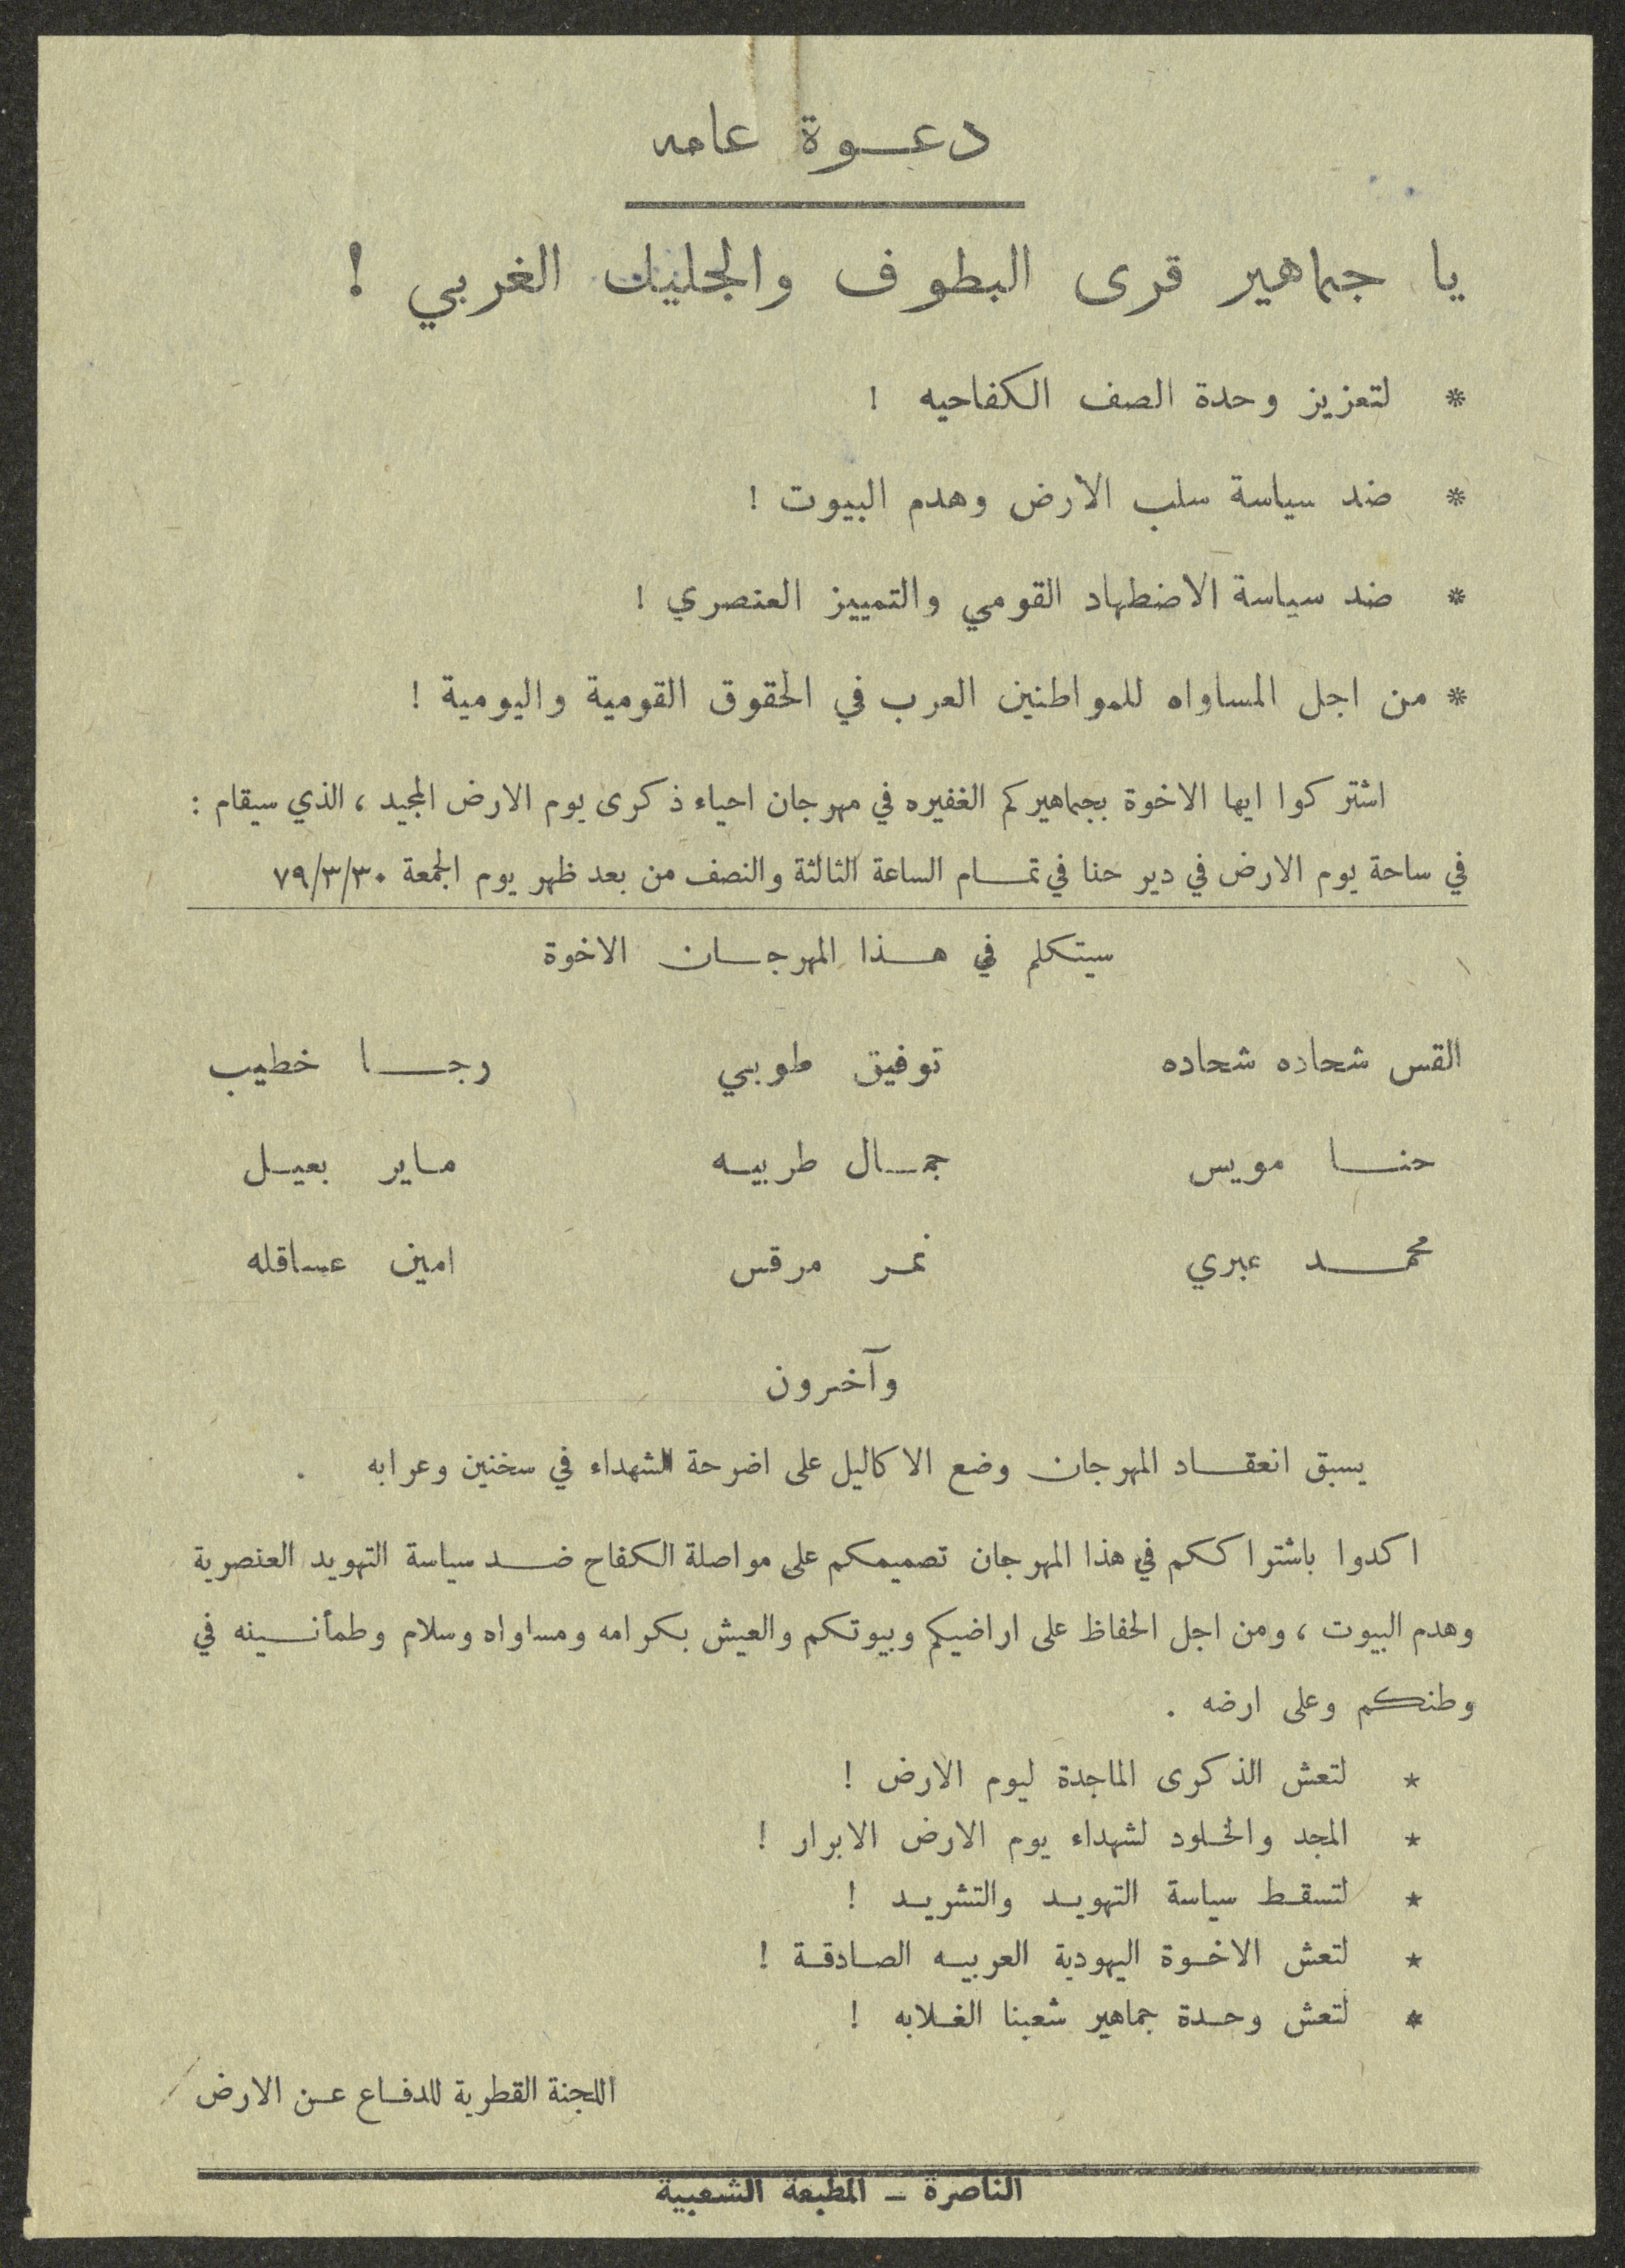 دعوة عامه
يا جماهير قرى البطوف والجليل الغربي !
* لتعزيز وحدة الصف الكفاحيه !
* ضد سياسة سلب الارض وهدم البيوت !
* ضد سياسة الاضطهاد القومي والتمييز العنصري !
* من اجل المساواه للمواطنين العرب في الحقوق القومية واليومية !
اشتركوا ايها الاخوة بجماهيركم الغفيره في مهرجان احياء ذكرى يوم الارض المجيد ، الذي سيقام :
في ساحة يوم الارض في دير حنا في تمام الساعة الثالثة والنصف من بعد ظهر يوم الجمعة ٧٩/٣/٣٠
سيتكلم في هذا المهرجان الاخوة
القس شحاده شحاده توفيق طوبي رجا خطيب
حنا مويس جمال طربيه ماير بعيل
محمد عبري نمر مرقس امين عساقله
وآخرون
يسبق انعقاد المهرجان وضع الاكاليل على اضرحة الشهداء في سخنين وعرابه .
اكدوا باشتراككم في هذا المهرجان تصميمكم على مواصلة الكفاح ضد سياسة التهويد العنصرية
وهدم البيوت ، ومن اجل الحفاظ على اراضيكم وبيوتكم والعيش بكرامه ومساواه وسلام وطمأنينه في
وطنكم وعلى ارضه .
* لتعش الذكرى الماجدة ليوم الارض !
* المجد والخلود لشهداء يوم الارض الابرار !
* لتسقط سياسة التهويد والتشريد !
* لتعش الاخوة اليهودية العربيه الصادقة !
* لتعش وحدة جماهير شعبنا الغلابه !
اللجنة القطرية للدفاع عن الارض
الناصرة – المطبعة الشعبية